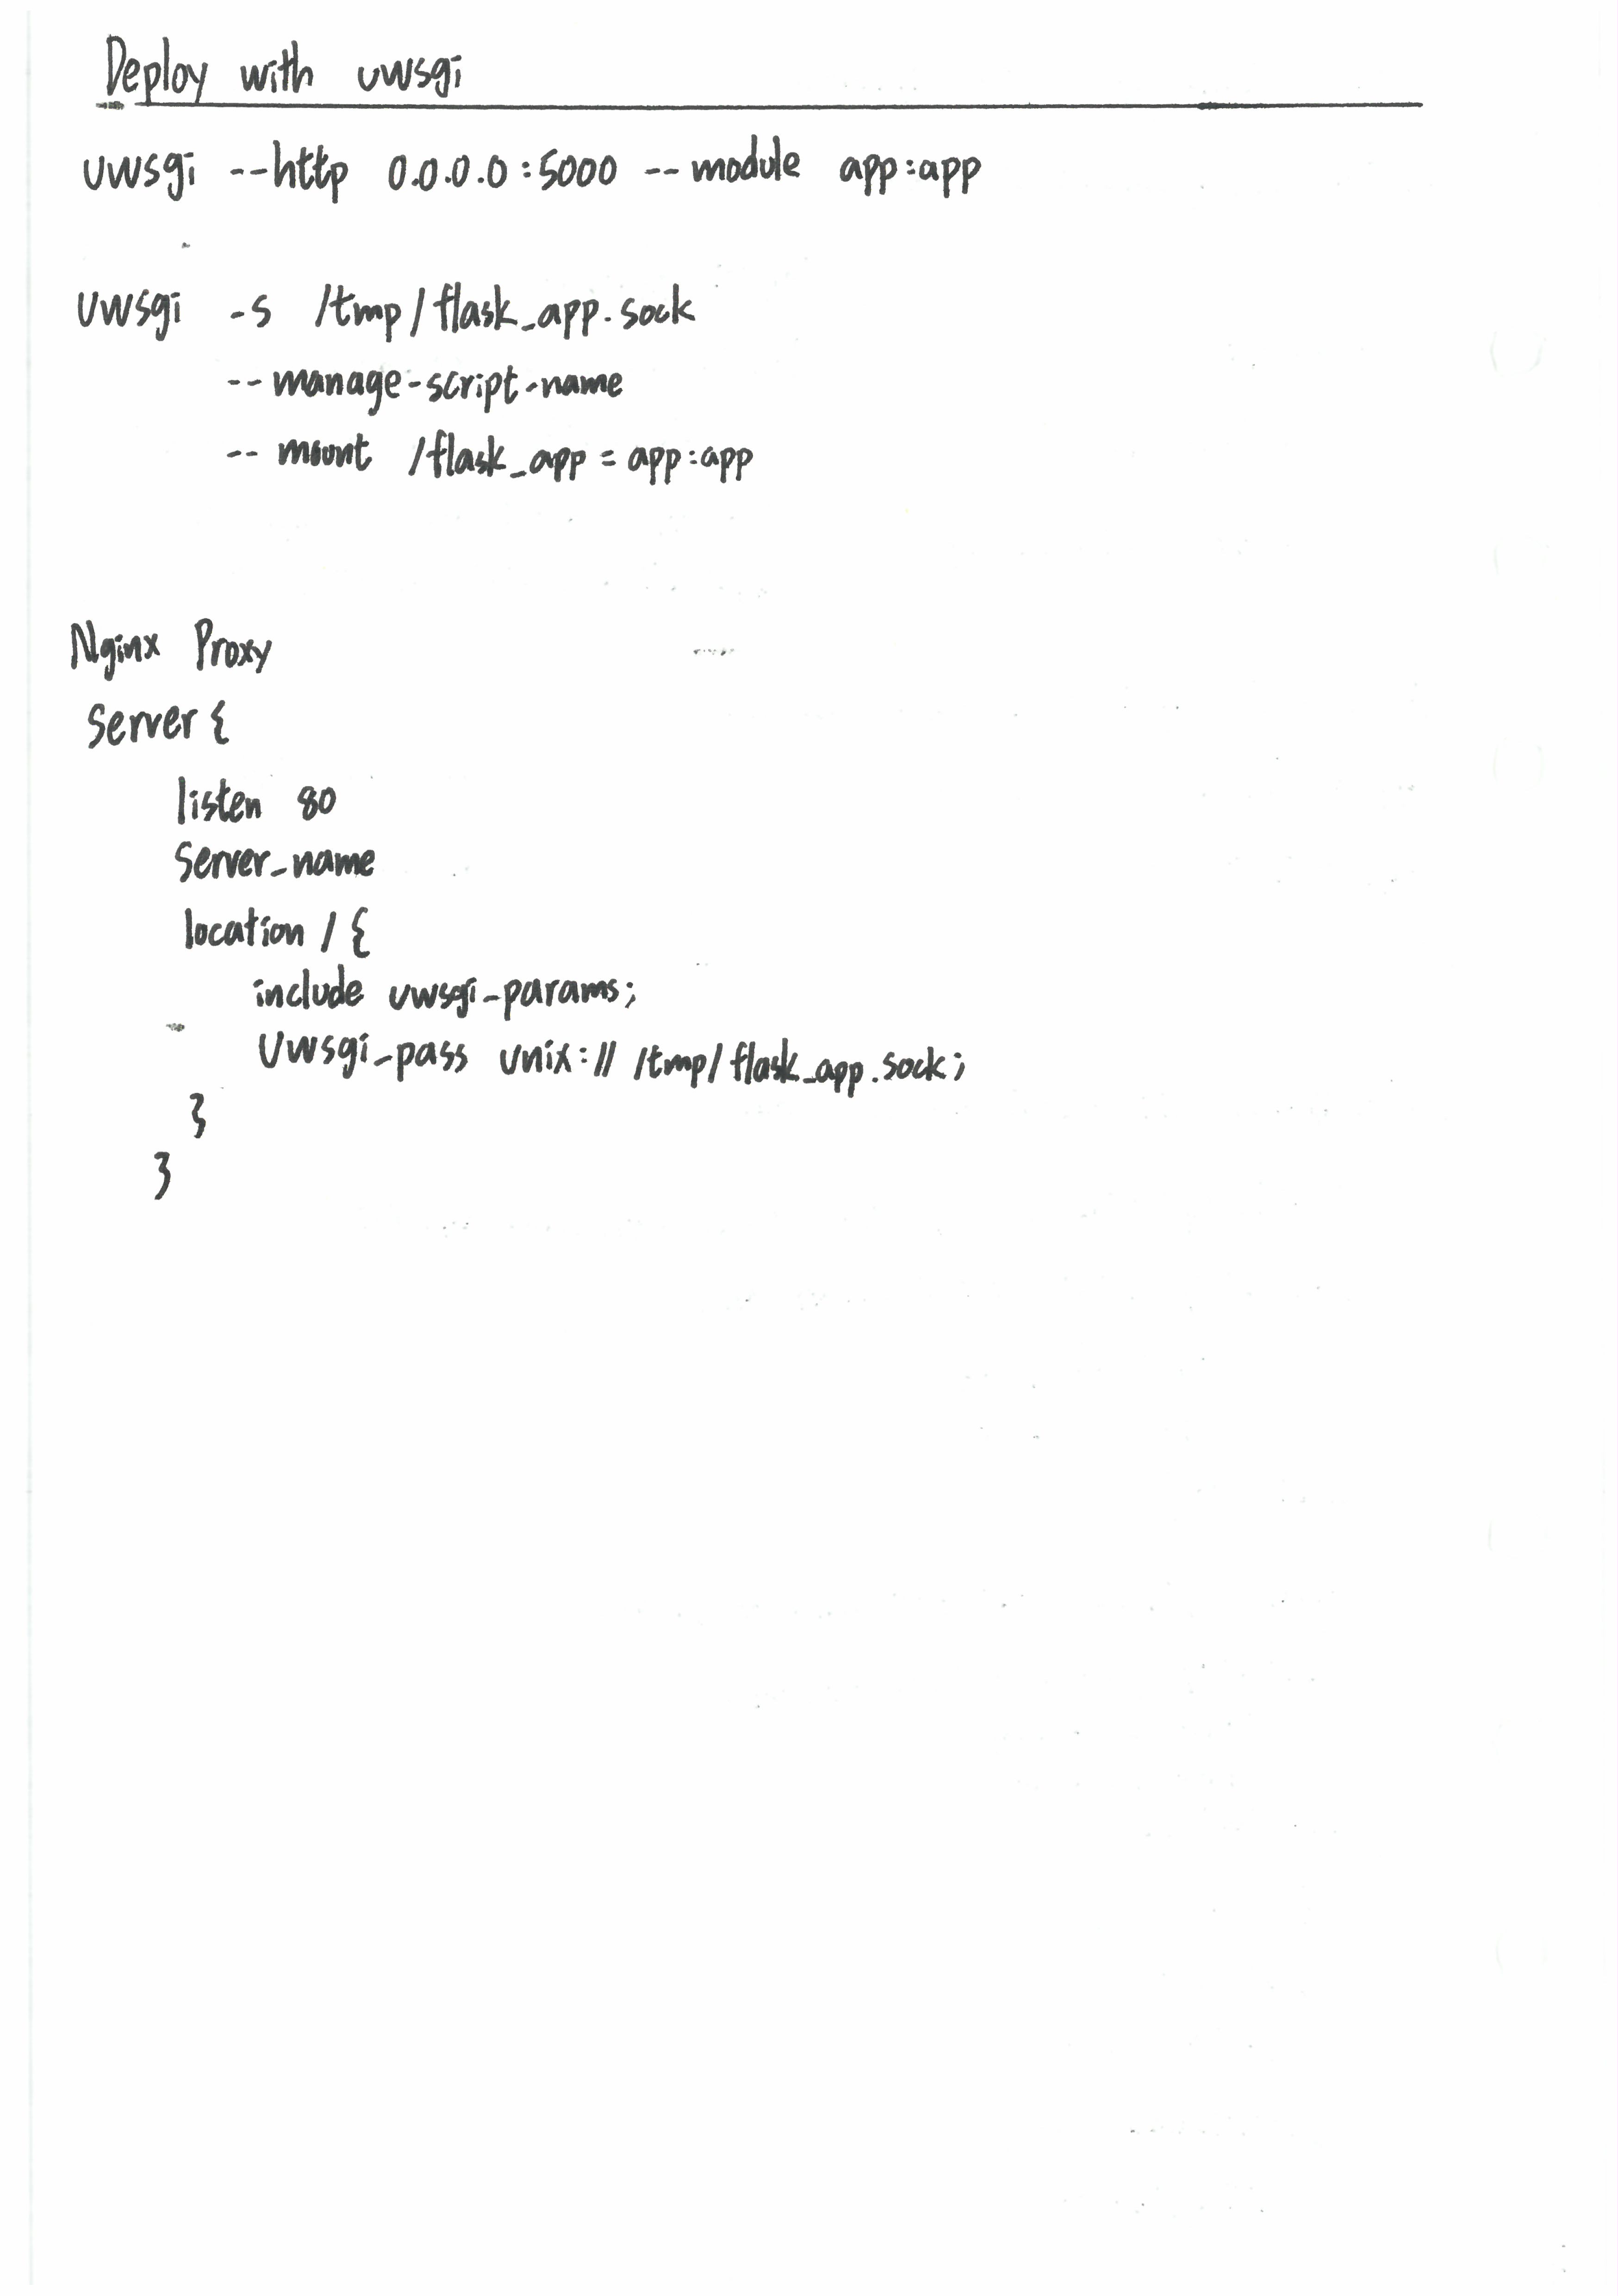 Deploy with uwsgi
uwsgi --http 0.0.0.0:5000 --module app:app
uwsgi -s /tmp/flask_app.sock
--manage-script-name
-- mount /flask_app = app:app
Nginx Proxy
server {
listen 80
server_name
location / {
include uwsgi_params;
uwsgi_pass unix:// /tmp/flask_app.sock;
}
}